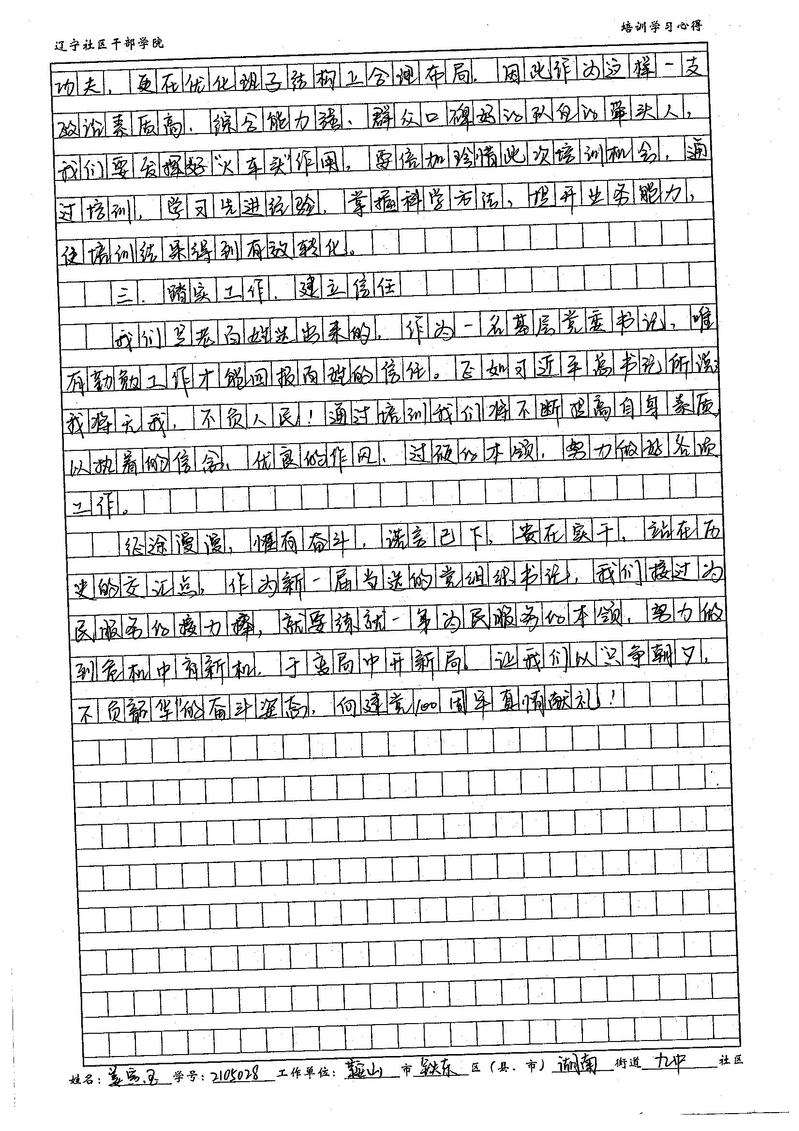 辽宁社区干部学院
培训学习心得
功夫，更在优化班子结构上合理布局。因此作为这样一支
政治素质高、综合能力强、群众口碑好的队伍的带头人，
我们要发挥好“火车头”作用，要倍加珍惜此次培训机会，通
过培训，学习先进经验，掌握科学方法，提升业务能力，
使培训结果得到有效转化。
三、踏实工作，建立信任
我们是老百姓选出来的，作为一名基层党委书记，唯
有勤勉工作才能回报百姓的信任。正如习近平总书记所说：
我将无我，不负人民！通过培训我们将不断提高自身素质，
以执着的信念、优良的作风、过硬的本领，努力做好各项
工作。
征途漫漫，惟有奋斗，诺言已下，贵在实干，站在历
史的交汇点，作为新一届当选的党组织书记，我们接过为
民服务的接力棒，就要练就一身为民服务的本领，努力做
到危机中育新机，于变局中开新局。让我们以“只争朝夕，
不负韶华”的奋斗姿态，向建党100周年真情献礼！
姓名：姜 学号：2105028 工作单位：鞍山 市 铁东 区（县、市） 湖南 街道 九中 社区